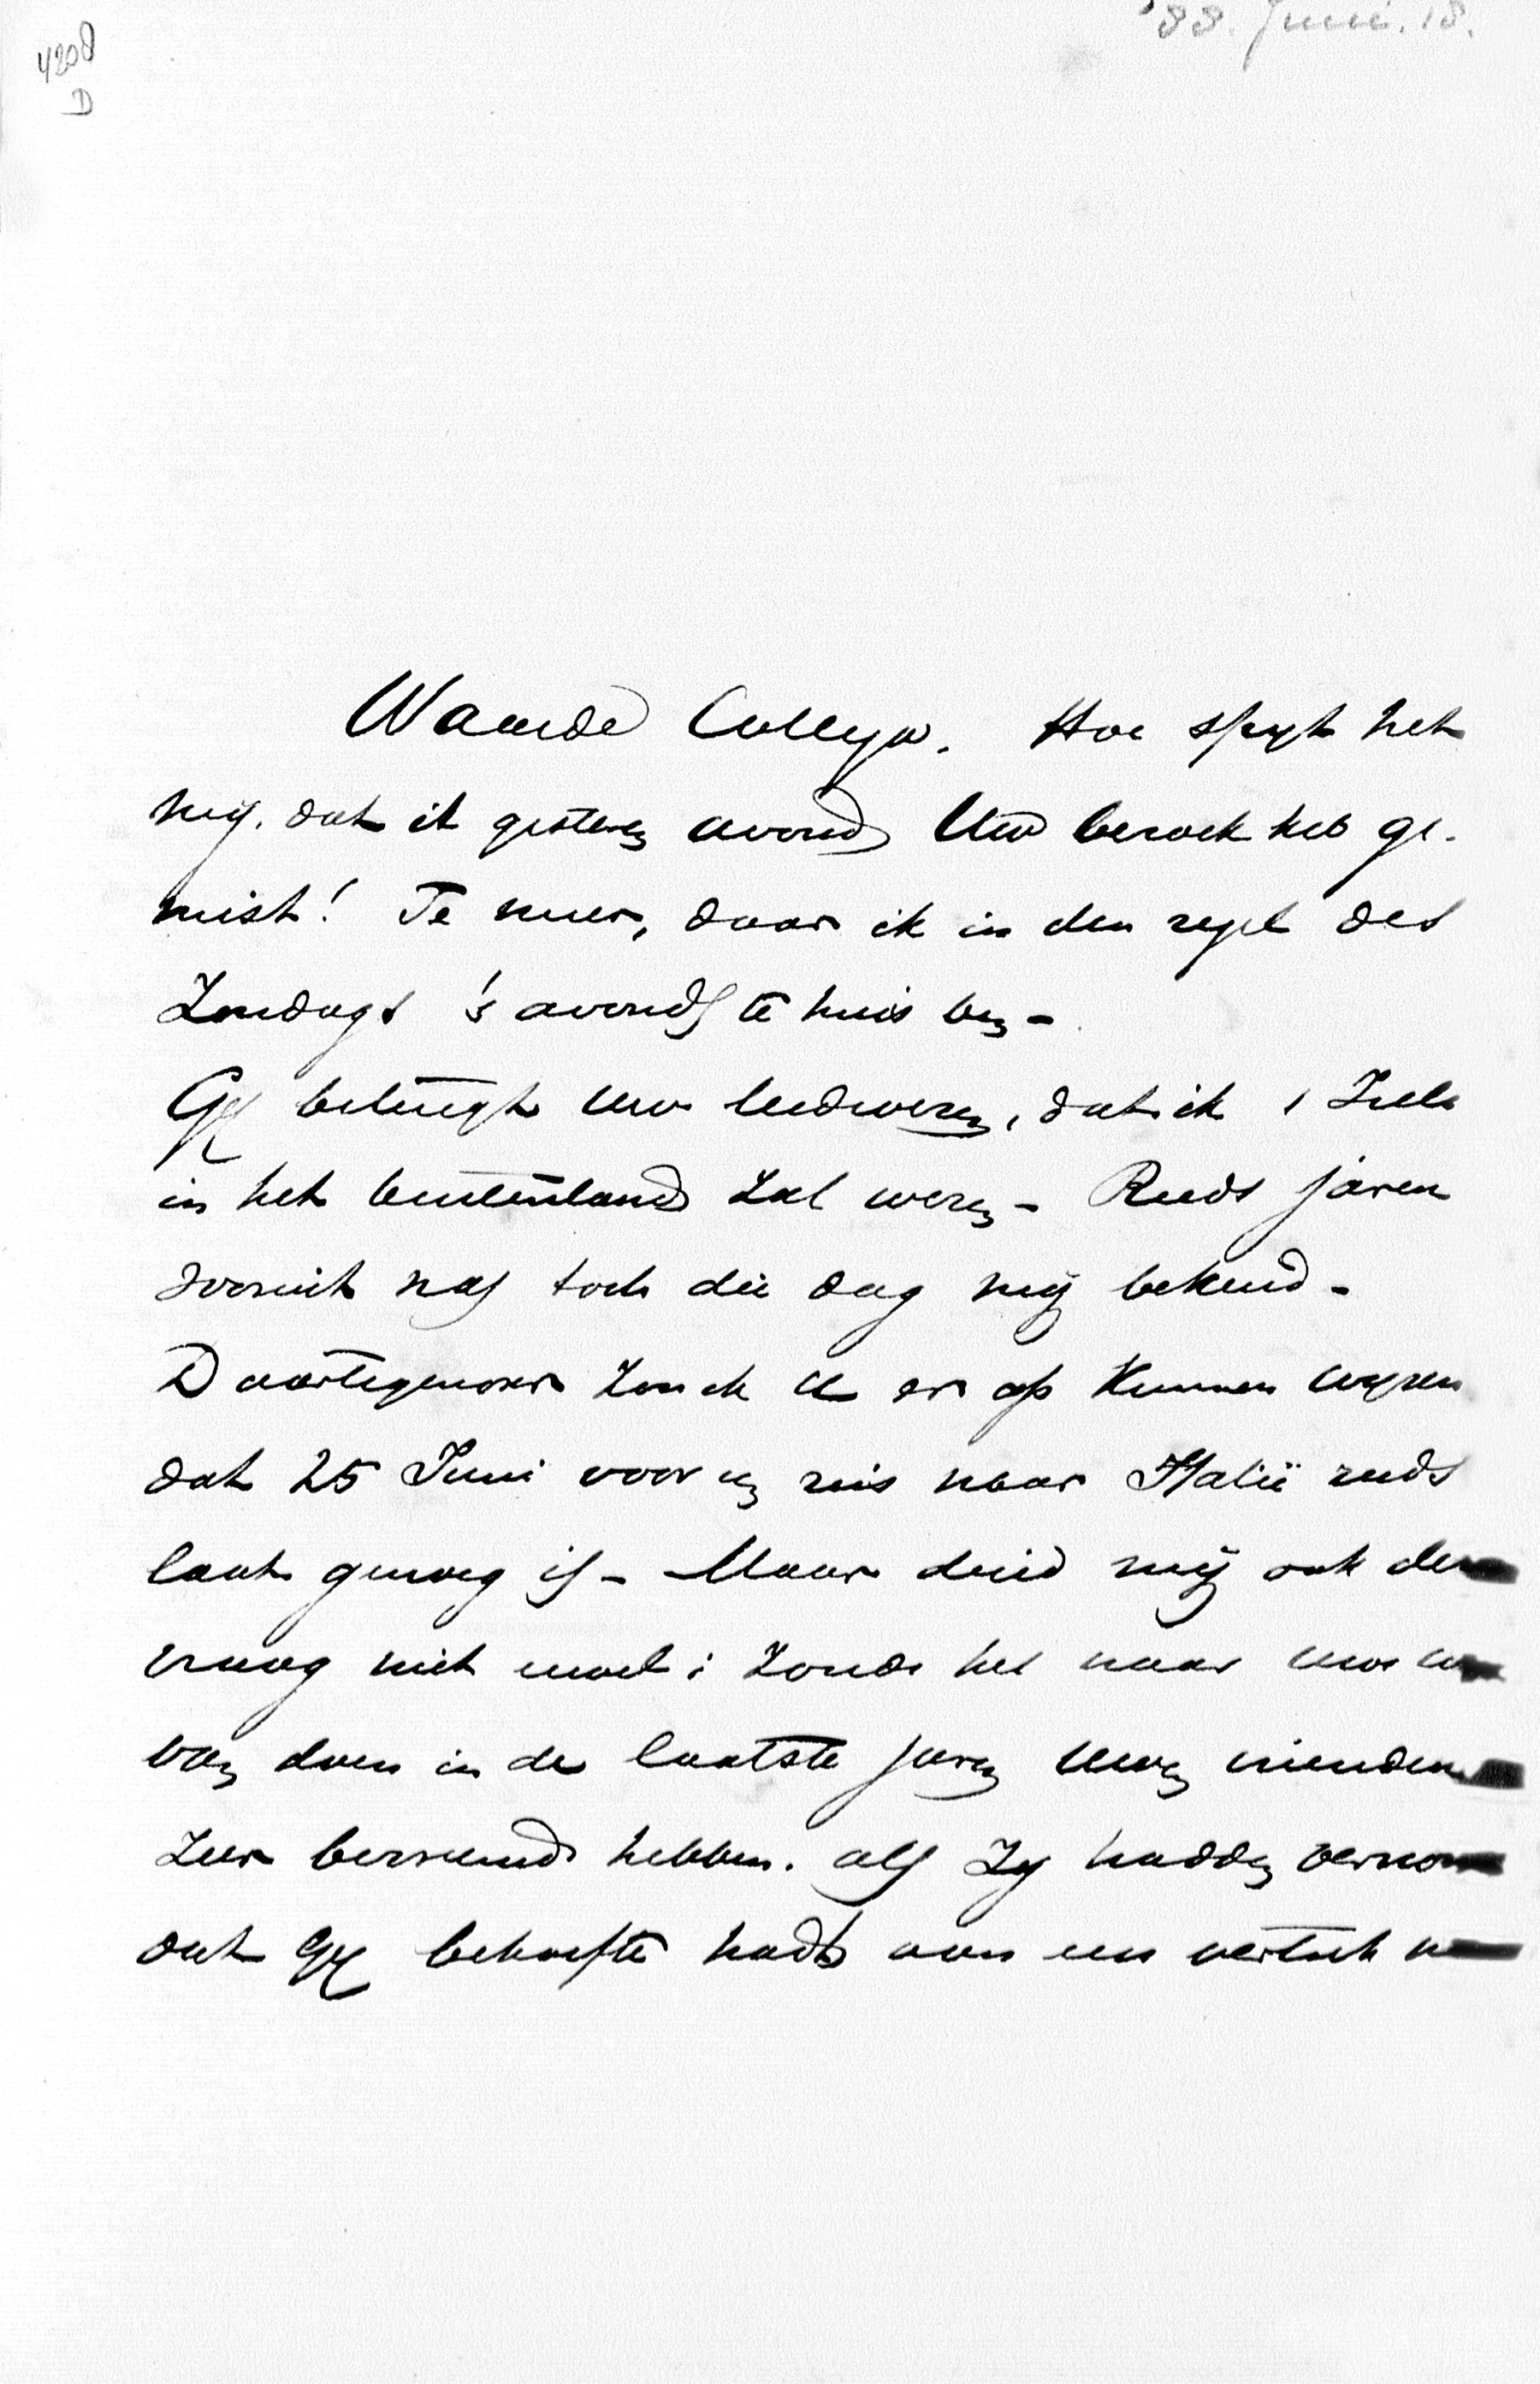 '88. Juni. 18.
4208
D
Waarde Collega. Hoe spijt het
mij, dat ik gisteren avond Uw bezoek heb ge-
mist! Te meer, daar ik in den regel des
Zondags 's avonds te huis ben -
Gij betuigt uw leedwezen, dat ik 1 Juli
in het buitenland zal wezen - Reeds jaren
vooruit was toch die dag mij bekend -
Daartegenover zou ik U er op kunnen wijzen
dat 25 Juni voor een reis naar Italië reeds
laat genoeg is - Maar duid mij ook de
vraag niet euvel: zoude het naar uwe
van doen in de laatste jaren Uwen vrienden
zeer bevreemd hebben, als zij hadden
dat Gij behoefte hadt aan een vertrek